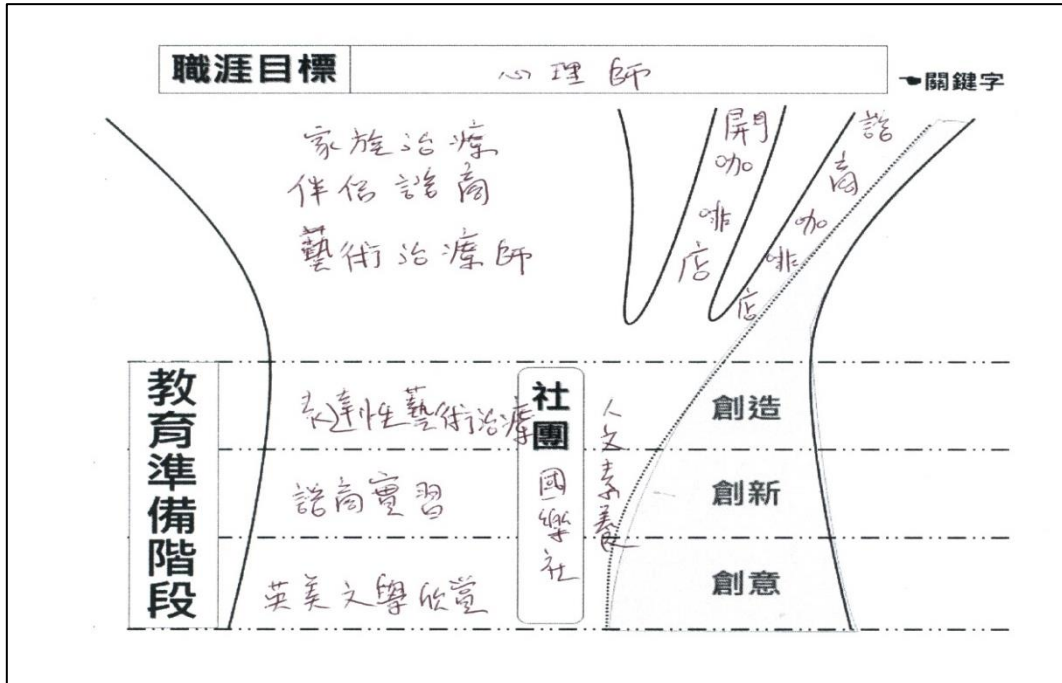 職涯目標
心理師
☚關鍵字
家族治療
伴侶諮商
藝術治療師
開咖啡店
諮商咖啡店
教育準備階段
表達性藝術治療
諮商實習
英美文學欣賞
社團
國樂社
人文素養
創造
創新
創意